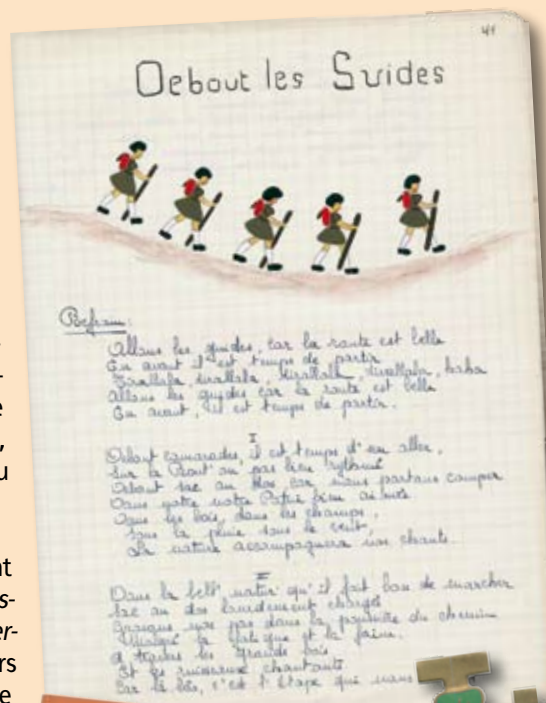 41
Debout les Guides
Refrain:
Allons les guides, car la route est belle
En avant il est temps de partir
tirallala, tirallala, haha
Allons les guides car la route est belle
En avant, il est temps de partir.
I
Debout camarades, il est temps d'en aller,
Sur la Rout' au pas bien rythmé
Debout sac au dos car nous partons camper
Dans notre Patrie bien aimée
Dans les bois, dans les champs,
sous la pluie sous le vent,
La nature acompagnera nos chants.
II
Dans la bell' natur' qu'il fait bon de marcher
Sac au dos lourdement chargé
nos pas dans la poussière du chemin
Malgré la fatigue et la faim.
A travers les grands bois
Et les ruisseaux chantants
Car là bas, c'est l'étape qui nous
t
e
,
u
nt
s-
er-
rs
e